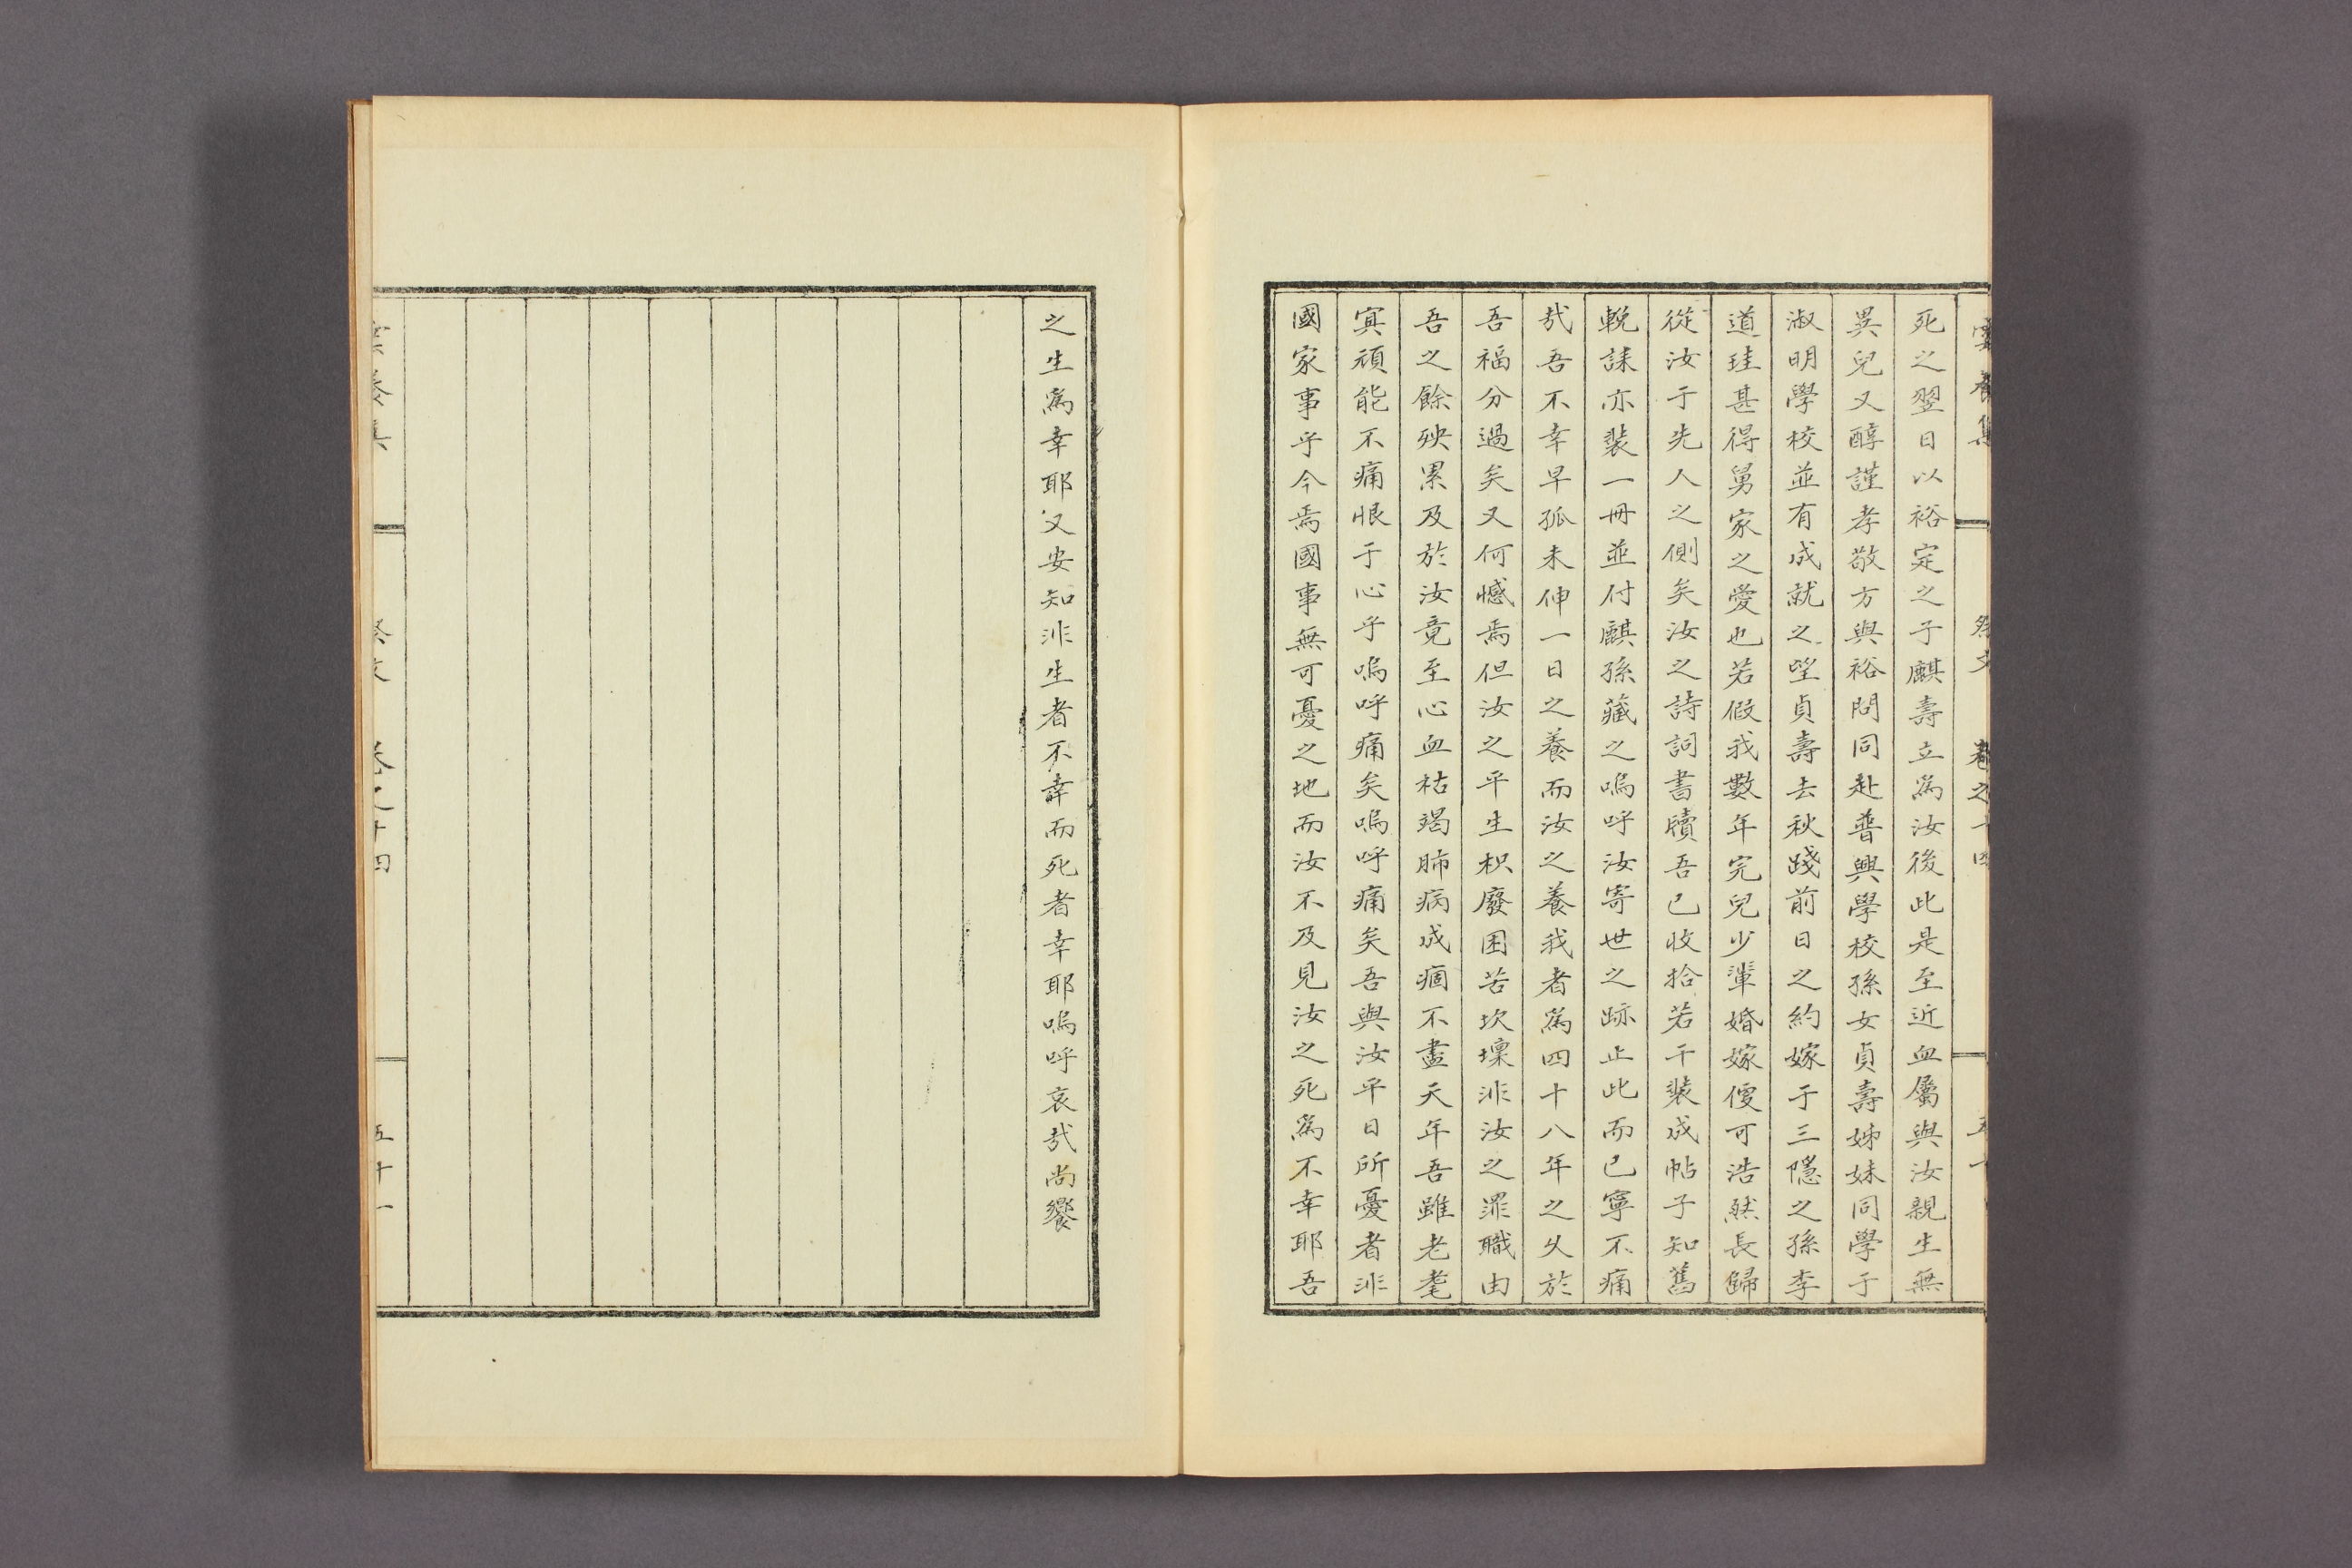 雲養集 祭文 卷之十四 五十
死之翌日以裕定之子麒壽立爲汝後此是至近血屬與汝親生無
異兒又醇謹孝敬方與裕問同赴普興學校孫女貞壽姊妹同學于
淑明學校並有成就之望貞壽去秋踐前日之約嫁于三隱之孫李
道珪甚得舅家之愛也若假我數年完兒少輩婚嫁僾可浩然長歸
從汝于先人之側矣汝之詩詞書牘吾已收拾若干裝成帖子知舊
輓誄亦裝一冊並付麒孫藏之嗚呼汝寄世之跡止此而已寧不痛
哉吾不幸早孤未伸一日之養而汝之養我者爲四十八年之久於
吾福分過矣又何憾焉但汝之平生枳廢困苦坎壈非汝之罪職由
吾之餘殃累及於汝竟至心血枯竭肺病成痼不盡天年吾雖老耄
寘頑能不痛恨于心乎嗚呼痛矣嗚呼痛矣吾與汝平日所憂者非
國家事乎今焉國事無可憂之地而汝不及見汝之死爲不幸耶吾
之生爲幸耶又安知非生者不幸而死者幸耶嗚呼哀哉尚饗
雲養集 祭文 卷之十四 五十一